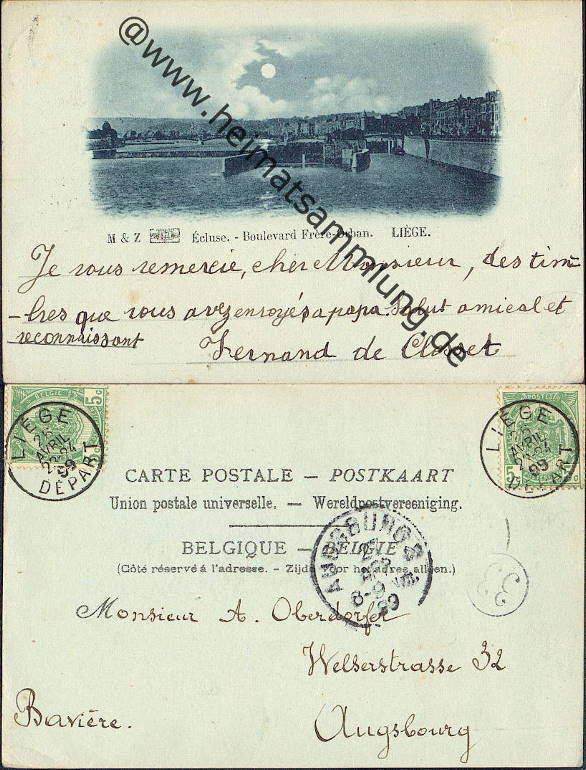 @www.heimatsammlung.de
M & Z Écluse. - Boulevard Frère-Orban. LIÉGE.
Je vous remercie, cher Monsieur, des tim-
-bres que vous avez envoyés à papa. Salut amical et
reconnaissant Fernand de Closset
BELGIE 5 c
LIÈGE
AVRIL
99
DÉPART
POSTERIJ
LIÈGE
AVRIL
99
DÉPART
CARTE POSTALE — POSTKAART
Union postale universelle. — Wereldpostvereeniging.
BELGIQUE — BELGIE
(Côté réservé à l'adresse. – Zijde voor het adres alleen.)
AUGSBURG
Monsieur A. Oberdorfer
Welserstrasse 32
Bavière. Augsbourg